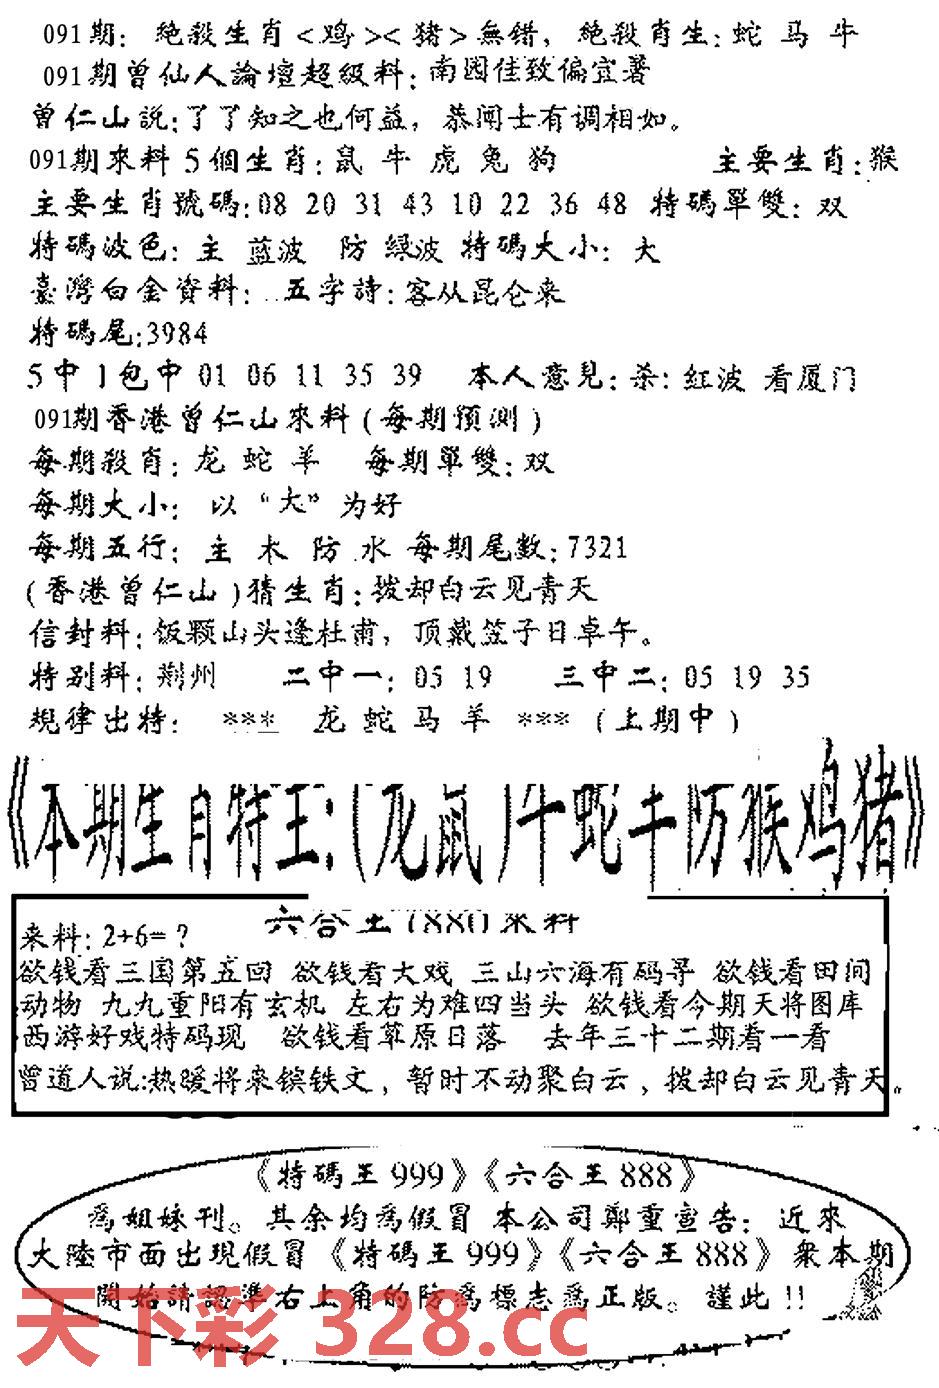 091期: 絶殺生肖<鸡><猪>無错, 絶殺肖生: 蛇 马 牛
091期曾仙人論壇超級料: 南园佳致偏宜著
曾仁山説: 了了知之也何益, 恭闻士有调相如。
091期來料 5個生肖: 鼠 牛 虎 兔 狗 主要生肖: 猴
主要生肖號碼: 08 20 31 43 10 22 36 48 特碼單雙: 双
特碼波色: 主 蓝波 防 绿波 特碼大小: 大
臺灣白金資料: 五字詩: 客从昆仑来
特碼尾: 3984
5中1包中 01 06 11 35 39 本人意見: 杀: 红波 看厦门
091期香港曾仁山來料(每期預測)
每期殺肖: 龙 蛇 羊 每期單雙: 双
每期大小: 以“大”为好
每期五行: 主 木 防 水 每期尾数: 7321
(香港曾仁山)猜生肖: 拨却白云见青天
信封料: 饭颗山头逢杜甫, 顶戴笠子日卓午。
特别料: 荆州 二中一: 05 19 三中二: 05 19 35
規律出特: *** 龙 蛇 马 羊 *** (上期中)
《本期生肖特王:(龙鼠)牛蛇羊防猴鸡猪》
六合王1880來料
来料: 2+6=?
欲钱看三国第五回 欲钱看大戏 三山六海有码寻 欲钱看田间
动物 九九重阳有玄机 左右为难四当头 欲钱看今期天将图库
西游好戏特码现 欲钱看草原日落 去年三十二期看一看
曾道人说: 热暖将来镔铁文, 暂时不动聚白云, 拨却白云见青天。
《特碼王999》《六合王888》
為姐妹刊。其余均為假冒 本公司鄭重宣告: 近來
大陸市面出現假冒《特碼王999》《六合王888》衆本期
開始請認準右上角的防為標志為正版。謹此!!
天下彩 328.cc